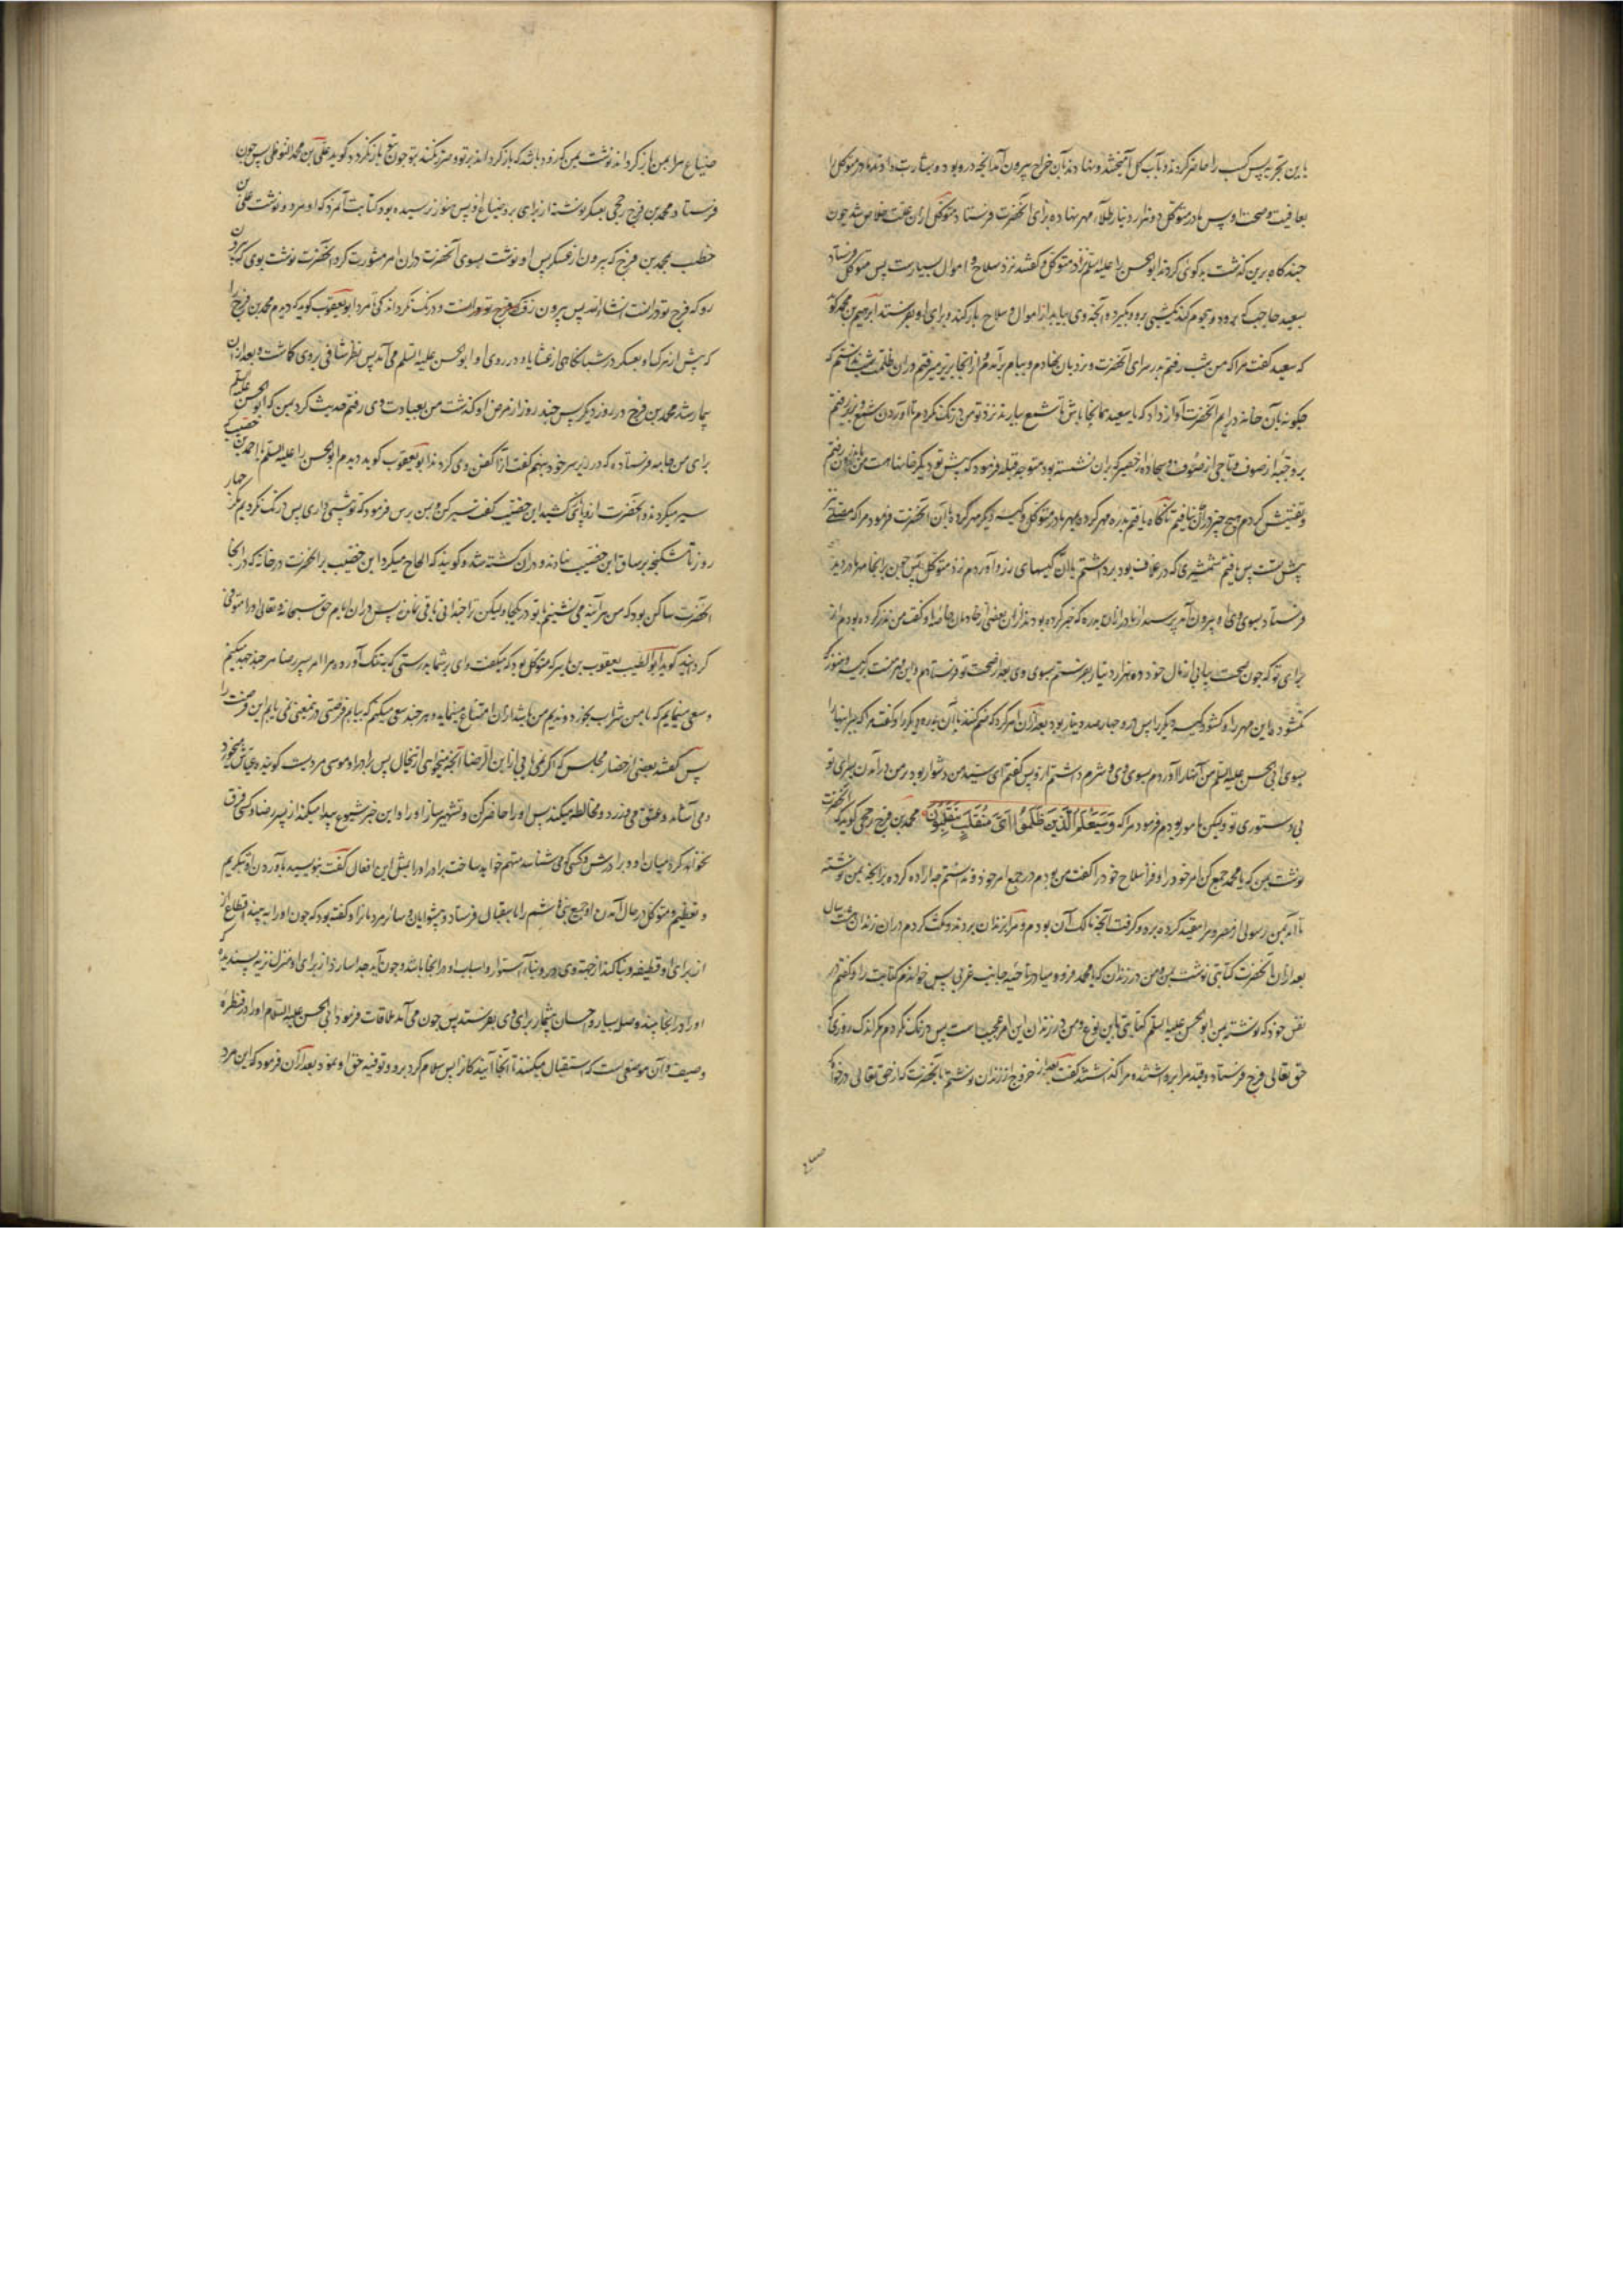 باین تجربه پس کسب را حاضر کردند و بآب کل آمیختند و نهادند بآن خراج بیرون آمد آنچه درو بود و بشارت دادند مادر متوکل را
بعافیت و صحت او پس مادر متوکل ده هزار دینار طلاء مهر نهاده برای آنحضرت فرستاد و متوکل ازان علت خلاص شد چون
چند گاه برین گذشت بدگوئی کردند ابو الحسن را علیه السلم نزد متوکل و گفتند نزد سلاح و اموال بسیارست پس متوکل فرستاد
سعید حاجب که برود و هجوم کند بشبی برو و بگیرد آنچه وی بیابد از اموال و سلاح بار کند و برای او بفرستد ابرهیم بن محمد گوید
که سعید گفت مرا که من شب رفتم بدر سرای آنحضرت و نردبان نهادم و ببام برآمدم و ازانجا بزیر میرفتم دران ظلمت شب ندانستم که
چگونه بآن خانه درایم آنحضرت آواز داد که یا سعید همانجا باش تا شمع بیارند نزد تو من درنگ نکردم تا آوردن شمع و بزیر رفتم
برو جبه از صوف و تاجی از صوف و سجاده از حصیر که بران نشسته بود متوجه قبله فرمود که پیش تو دیگر خانها است من باندرون رفتم
و تفتیش کردم هیچ چیز دران نیافتم ناگاه یافتم بدره مهر کرده بمهر مادر متوکل و کیسه دیگر مهر کرده با آن آنحضرت فرمود مرا که مصلی نیز
پیش تست پس یافتم شمشیری که در غلاف بود برداشتم با آن کیسهای زر و آوردم نزد متوکل پس چون برانجا مهر مادر دید
فرستاد بسوی وی او بیرون آمد پرسید از مادر ازان بدره که خبر کرده بودند ازان بعضی از خادمان خاصه او گفت من نذر کرده بودم از
برای تو که چون صحت بیابی از مال خود ده هزار دینار بفرستم بسوی وی بعد از صحت تو فرستادم و این مهر منست بر کیسه و هنوز که
نکشوده این مهر را و کشود کیسه دیگر را پس درو چهار صد دینار بود بعد ازان امر کرد که ضم کنند با آن بدره دیگر را و گفت مرا که ببر اینها را
بسوی ابی الحسن علیه السلم من آنها را آوردم بسوی وی و شرم داشتم ازو پس گفتم ای سید من دشوار بود بر من درآمدن بسرای تو
بی دستوری تو ولیکن مامور بودم فرمود مرا که وَسَيَعْلَمُ الَّذِينَ ظَلَمُوا أَيَّ مُنْقَلَبٍ يَنْقَلِبُونَ محمد بن فرج رخجی گوید که آنحضرت
نوشت بمن که یا محمد جمع کن امر خود را و فراز سلاح خود را گفت من بودم در جمع امر خود و ندانستم چه اراده کرده بر آنچه بمن نوشته
تا آمد بمن رسولی از مصر و مرا مقید کرده برد و گرفت آنچه مالک آن بودم و مرا بزندان بردند و مکث کردم دران زندان هشت سال
بعد ازان آنحضرت کتابتی نوشت بمن و من در زندان که یا محمد فرو میا در ناحیه جانب غربی پس خواندم کتابت را و گفتم در
نفس خود که نوشته بمن ابو الحسن علیه السلم کتابتی باین نوع و من در زندان این امر عجیب است پس درنگ نکردم مگر اندک روزی که
حق تعالی فرج فرستاد و قید مرا برداشتند و مرا گذاشتند گفت بعد از خروج از زندان نوشتم بآنحضرت که از حق تعالی درخواه که
ضیاع
ضیاع مرا بمن باز گرداند نوشت بمن که زود باشد که باز گرداند بر تو و ضرر نکند بتو چون باز نگردد گوید علی بن محمد النوفلی پس چون
فرستاد محمد بن فرج رخجی بعسکر نوشته از برای برد ضیاع او پس هنوز نرسیده بود کتابت آمرزد که او مرد و نوشت علی بن
خطیب بمحمد بن فرج که بیرون از عسکر پس او نوشت بسوی آنحضرت دران امر مشورت کرد آنحضرت نوشت بوی که بیرون
رو که فرج تو درانست انشاء الله پس بیرون رفت که فرج تو درانست و درنگ نکرد اندکی تا مرد ابو یعقوب گوید که دیدم محمد بن فرج را
که پیش از مرگ او بعسکر در شبانگاهی از عشایا و در روی او ابو الحسن علیه السلم می آمد پس نظر شافی بروی گماشت و بعد ازان
بیمار شد محمد بن فرج در روز دیگر پس چند روز از مرض او گذشت من بعیادت وی رفتم حدیث کرد بمن که ابو الحسن علیه السلم
برای من جامه فرستاده که در زیر سر خود بنهم گفت ازان کفن وی کردند ابو یعقوب گوید دیدم ابو الحسن را علیه السلم با احمد بن خصیب که
سیر میکردند و آنحضرت اندپائی کشید ابن خصیب گفت سیر کن و بمن برس فرمود که تو پیشی داری پس درنگ نکردیم مگر چهار
روز تا شکنجه بر ساق ابن خصیب نهادند و دران کشته شد و گویند که الحاح میکرد ابن خصیب بر آنحضرت در خانه که در آنجا
آنحضرت ساکن بود که من هر آینه می نشینم با تو در یکجا ولیکن ترا چندانی باقی نماند پس دران ایام حق سبحانه و تعالی او را متوفی
گردانید گوید ابو الطیب یعقوب بن یاسر که متوکل بود که میگفت وای بر شما بدرستی که بتنگ آورده مرا امر پسر رضا هر چند جهد میکنم
و سعی مینمایم که با من شراب بخورد و ندیم من باشد ازان امتناع مینماید و هر چند سعی میکنم که بیابم فرصتی درینمعنی نمی یابم این فرصت را
پس گفتند بعضی از حضار مجلس که اگر نمی یابی از ابن الرضا آنچه میخواهی از نحال پس برادر او موسی مردیست گوینده و عیاش میخورد
و می آشامد و عشق می ورزد و مخالطه میکند پس او را حاضر کن و تشهیر ساز او را و این خبر شیوع پیدا میکند از پسر رضا و کسی فرق
نخواهد کرد میان او و برادرش و کسی که می شناسد متهم خواهد ساخت برادر او را بمثل این افعال گفت بنویسید بآوردن او بتکریم
و تعظیم و متوکل در حال آمدن او جمیع بنی هاشم را باستقبال فرستاد و پیشوایان و سائر مردمانرا و گفته بود که چون او را ببیند اقطاع از
از برای او قطیفه و بنا کند از جهة وی درو بناء استوار و اسباب او در آنجا باشد و چون آید جدا سازد از برای او منزل نزیه پسندیده که
او را در انجا بیند و صله بسیار و احسان بیشمار برای وی بفرستد پس چون می آمد ملاقات فرمود ابی الحسن علیه السلام او را در قنطره
وصیف و آن موضعی است که استقبال میکنند تا آنجا آیندگانرا پس سلام کرد برو و توفیه حق او نمود بعد ازان فرمود که این مرد